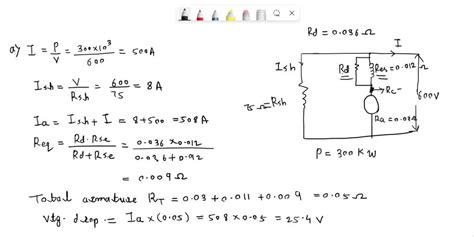 Rd = 0.036 Ω
a) I = P/V = 300×10³/600 = 500A
Ish = V/Rsh = 600/75 = 8 A
Ia = Ish + I = 8+500 = 508A
Req = Rd·Rse/Rd+Rse = 0.036×0.012/0.036+0.92
= 0.009 Ω
Total armature RT = 0.03 + 0.011 + 0.009 = 0.05 Ω
Vtg. drop = Ia × (0.05) = 508 × 0.05 = 25.4 V
I
Ish
Rd
=0.012 Ω
Rc
75 Ω = Rsh
600V
P = 300 KW